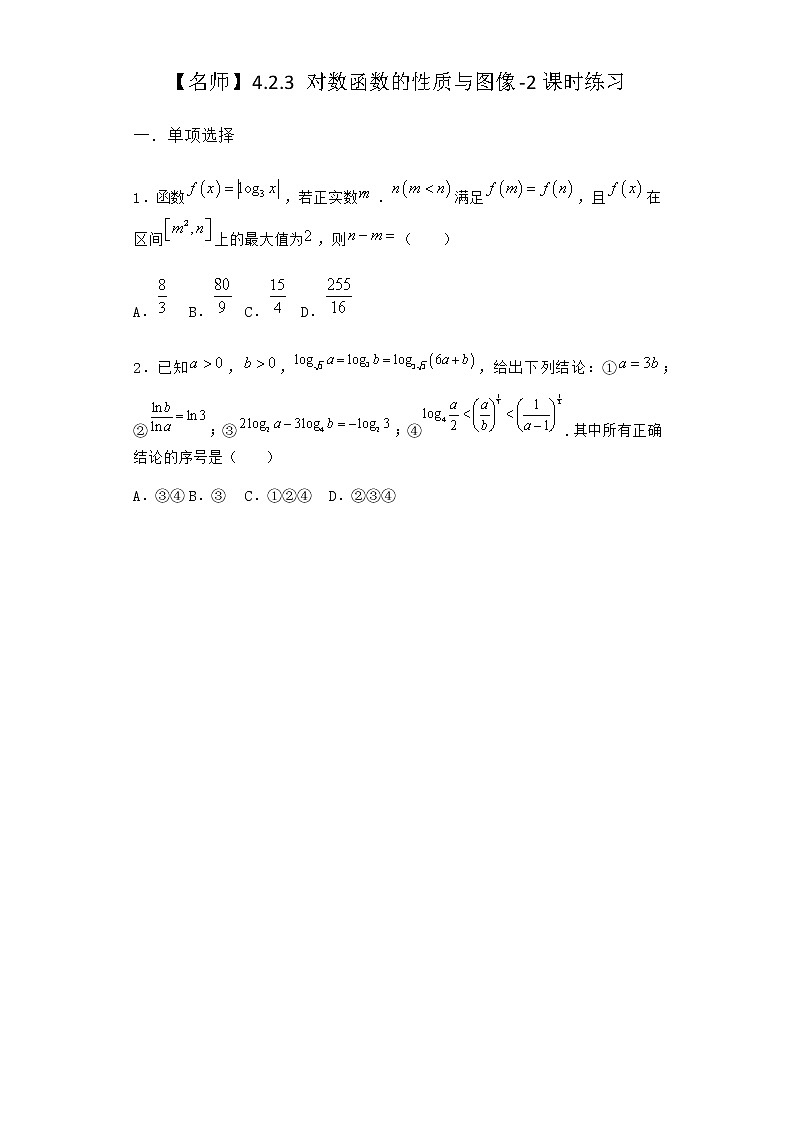 【名师】4.2.3 对数函数的性质与图像-2课时练习
一．单项选择
1.函数f(x)=|log₃x|,若正实数m.n(m<n)满足f(m)=f(n),且f(x)在
区间[m²,n]上的最大值为2,则n−m=（ ）
A.8/3 B.80/9 C.15/4 D.255/16
2.已知a>0,b>0,给出下列结论:①a=3b;
②lnb/lna=ln3;③2log₂a−3log₄b=−log₂3;④.其中所有正确
结论的序号是（ ）
A.③④ B.③ C.①②④ D.②③④